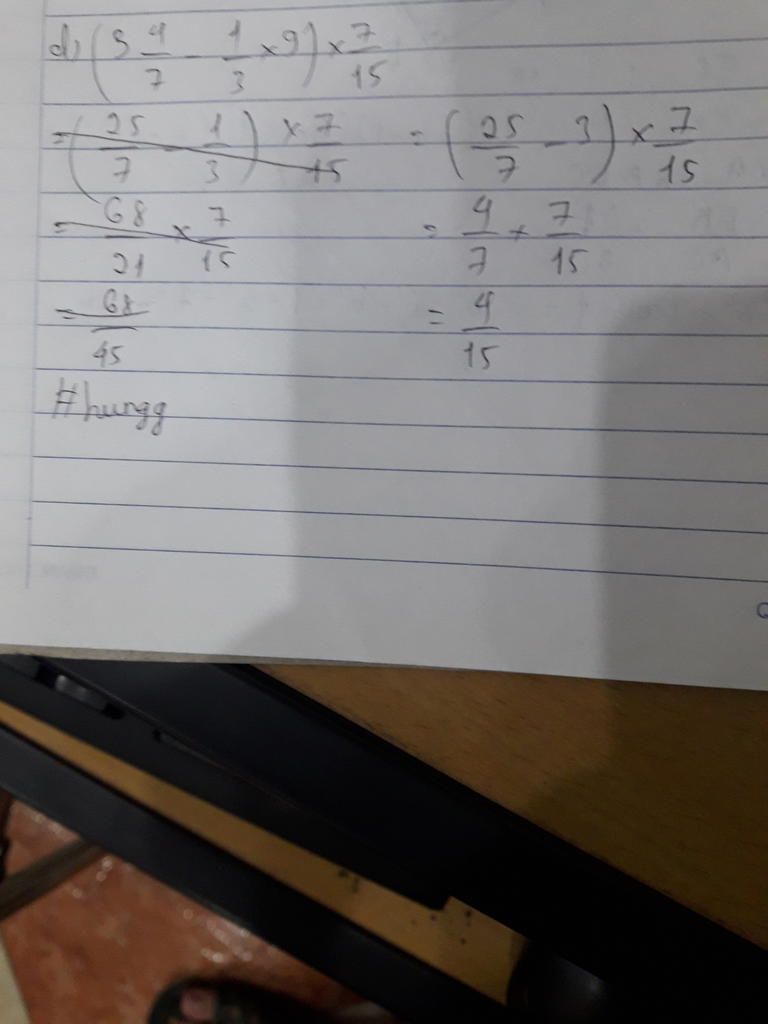 d) (3 4/7 - 1/3 × 9) × 7/15
= (25/7 - 1/3) × 7/15 = (25/7 - 3) × 7/15
= 68/21 × 7/15 = 4/7 × 7/15
= 68/45 = 4/15
#hungg